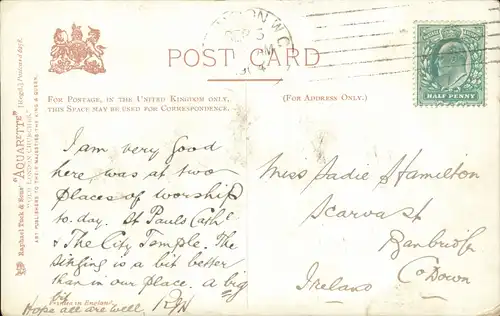 LONDON W.C
SEP 5
POST CARD
FOR POSTAGE, IN THE UNITED KINGDOM ONLY,
THIS SPACE MAY BE USED FOR CORRESPONDENCE.
(FOR ADDRESS ONLY.)
HALF PENNY
Raphael Tuck & Sons' "AQUARETTE" [Regd.] Postcard
"OLD LONDON CHURCHES."
ART PUBLISHERS TO THEIR MAJESTIES THE KING & QUEEN.
I am very good
here was at two
places of worship
to-day. St Pauls Cathl
& The City Temple. The
singing is a bit better
than in our place. a big
bit
Printed in England.
Hope all are well. RJH
Miss Sadie Hamilton
Scarva St
Banbridge
Co Down
Ireland